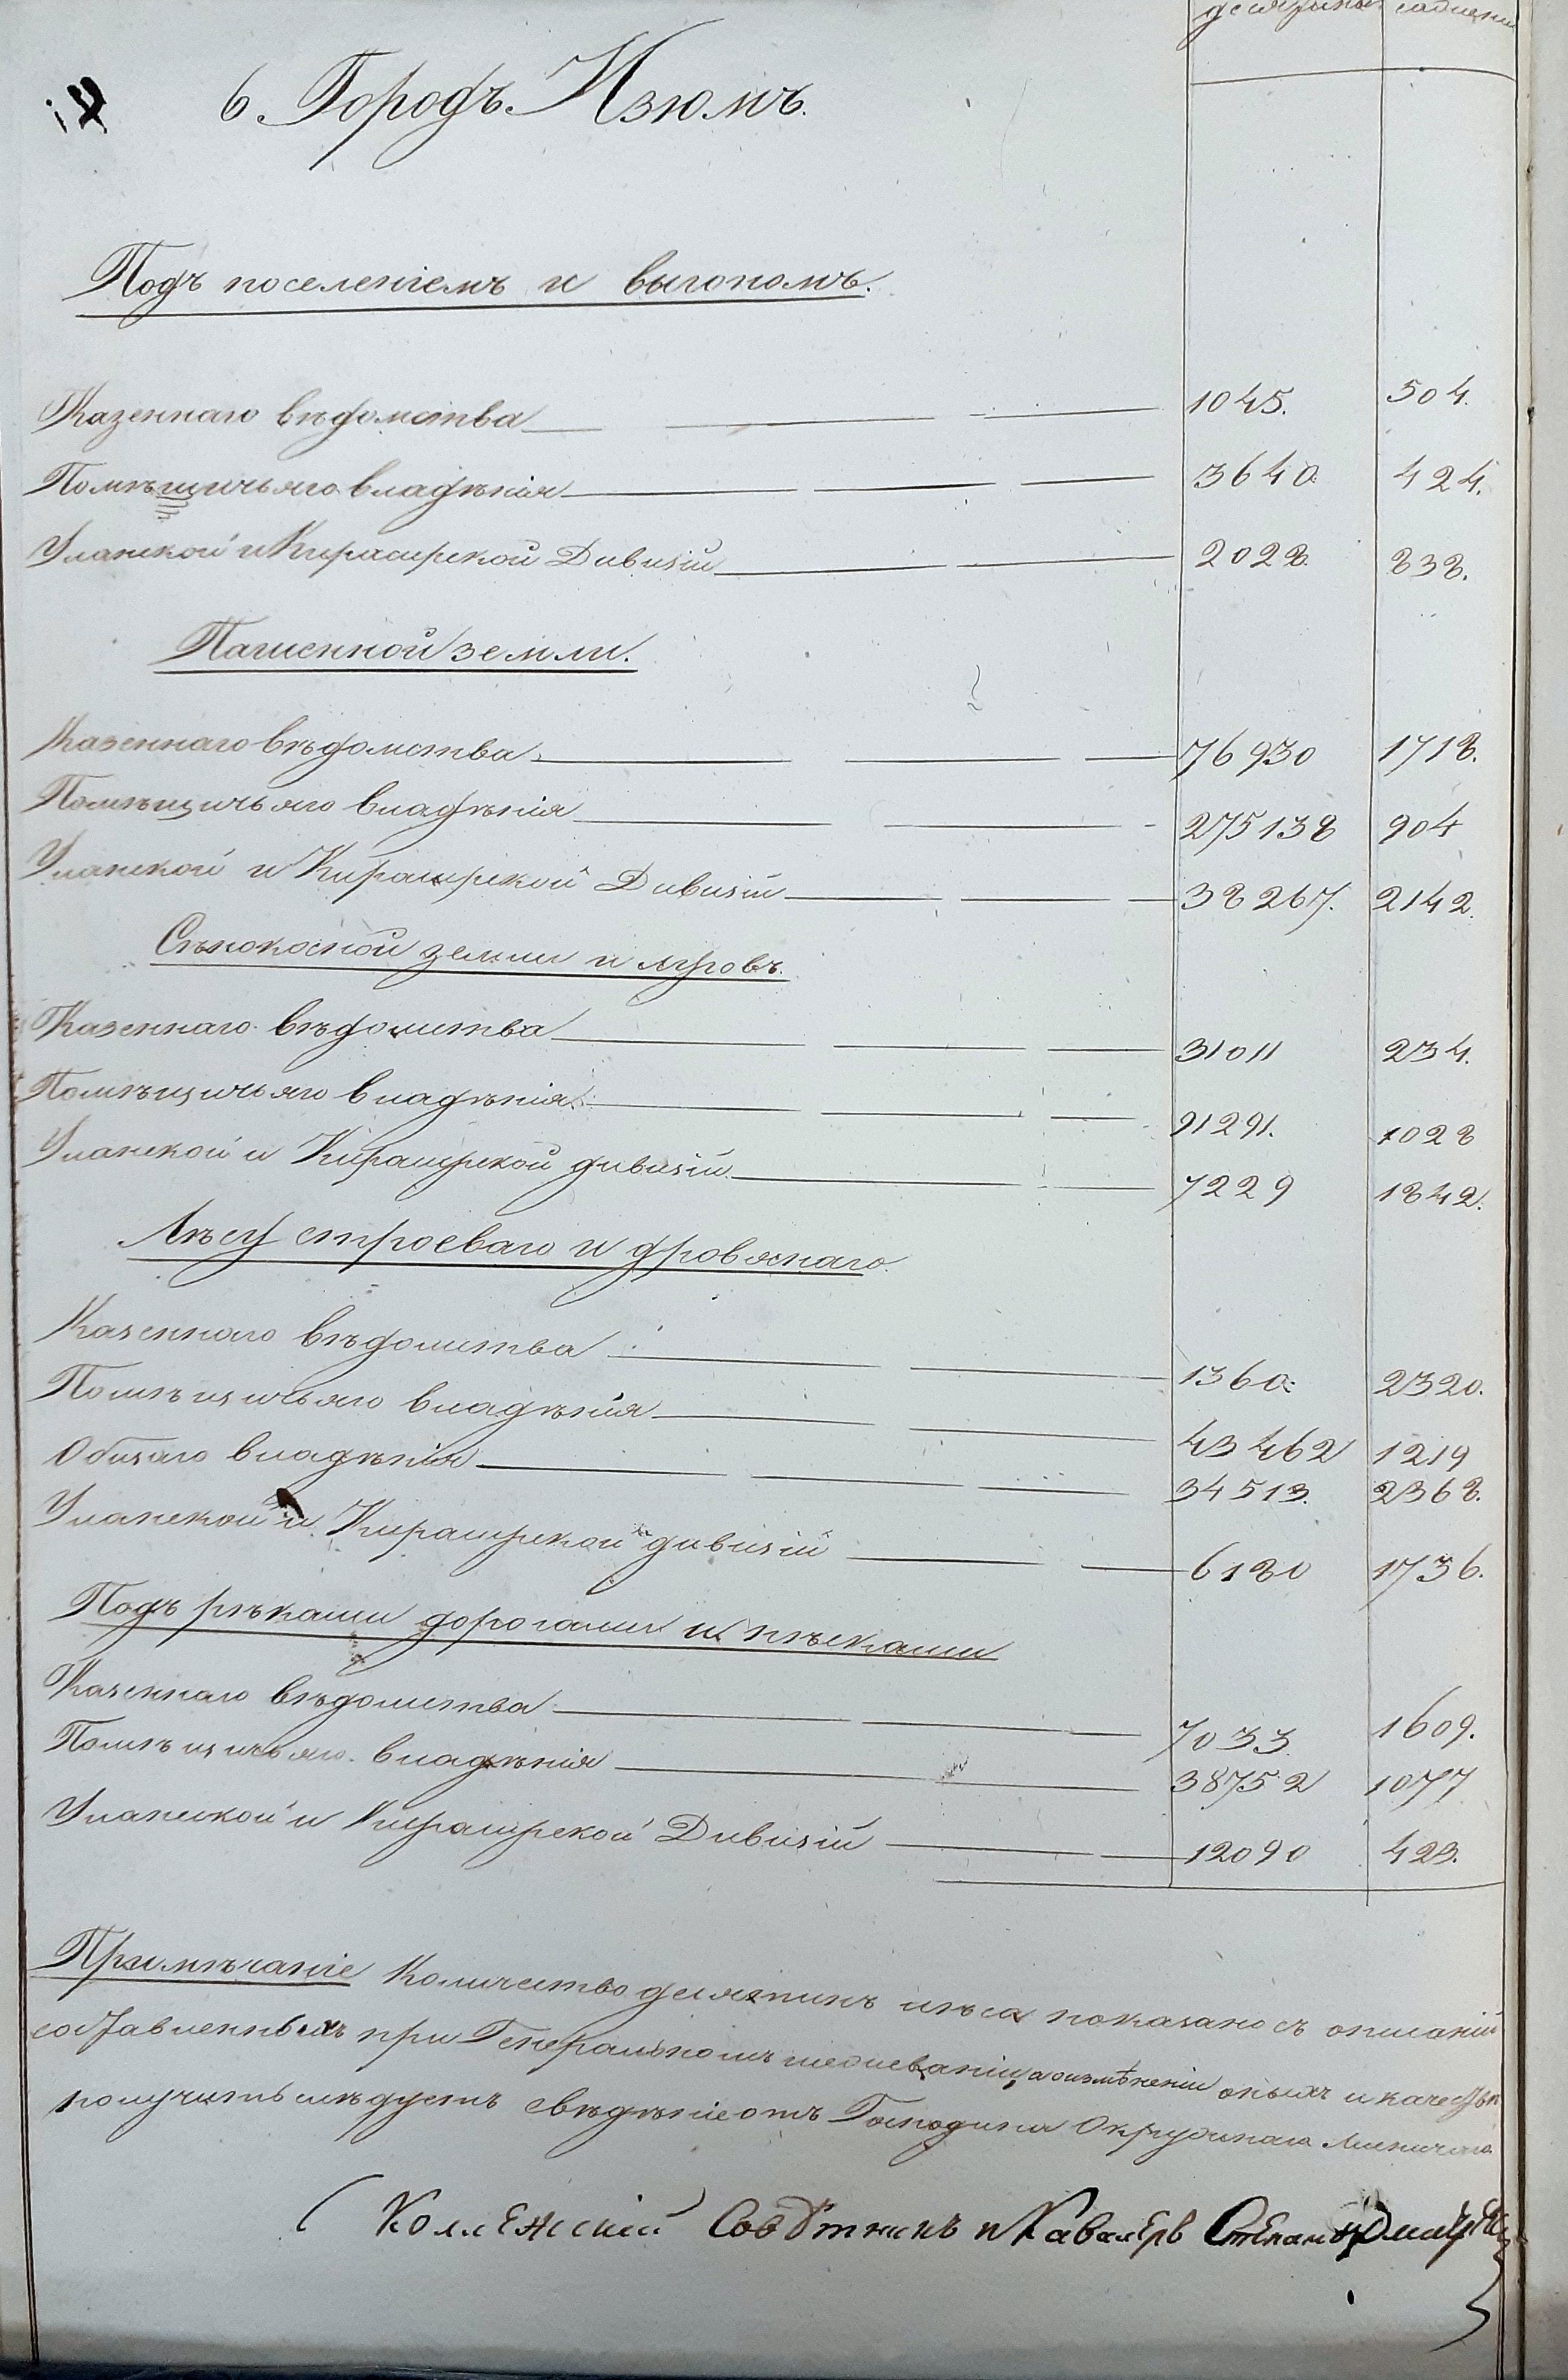 десятины сажени
6. Городъ Изюмъ.
Подъ поселеніемъ и выгономъ.
Казеннаго вѣдомства 1045. 504.
Помѣщичьяго владѣнія 3640. 424.
Уланской и Кирасирской Дивизіи 2028. 838.
Пашенной земли.
Казеннаго вѣдомства 76930 1718.
Помѣщичьяго владѣнія 275138 904
Уланской и Кирасирской Дивизіи 38267. 2142.
Сѣнокосной земли и луговъ.
Казеннаго вѣдомства 31011 234.
Помѣщичьяго владѣнія 91291. 1028
Уланской и Кирасирской дивизіи 7229 1842.
Лѣсу строеваго и дровянаго.
Казеннаго вѣдомства 1360. 2320.
Помѣщичьяго владѣнія 43462 1219
Общаго владѣнія 34513. 2368.
Уланской и Кирасирской дивизіи 6180 1736.
Подъ рѣками дорогами и пѣсками
Казеннаго вѣдомства 7033. 1609.
Помѣщичьяго владѣнія 38752 1077
Уланской и Кирасирской Дивизіи 12090 423.
Примѣчаніе Количество десятинъ лѣса показано съ описаній
составленныхъ при Генеральномъ межеваніи, а о измѣненіи оныхъ и качествѣ
получить слѣдуетъ свѣдѣніе отъ Господина Окружнаго Лѣсничаго
Коллежскій Совѣтникъ и Кавалеръ Степанъ